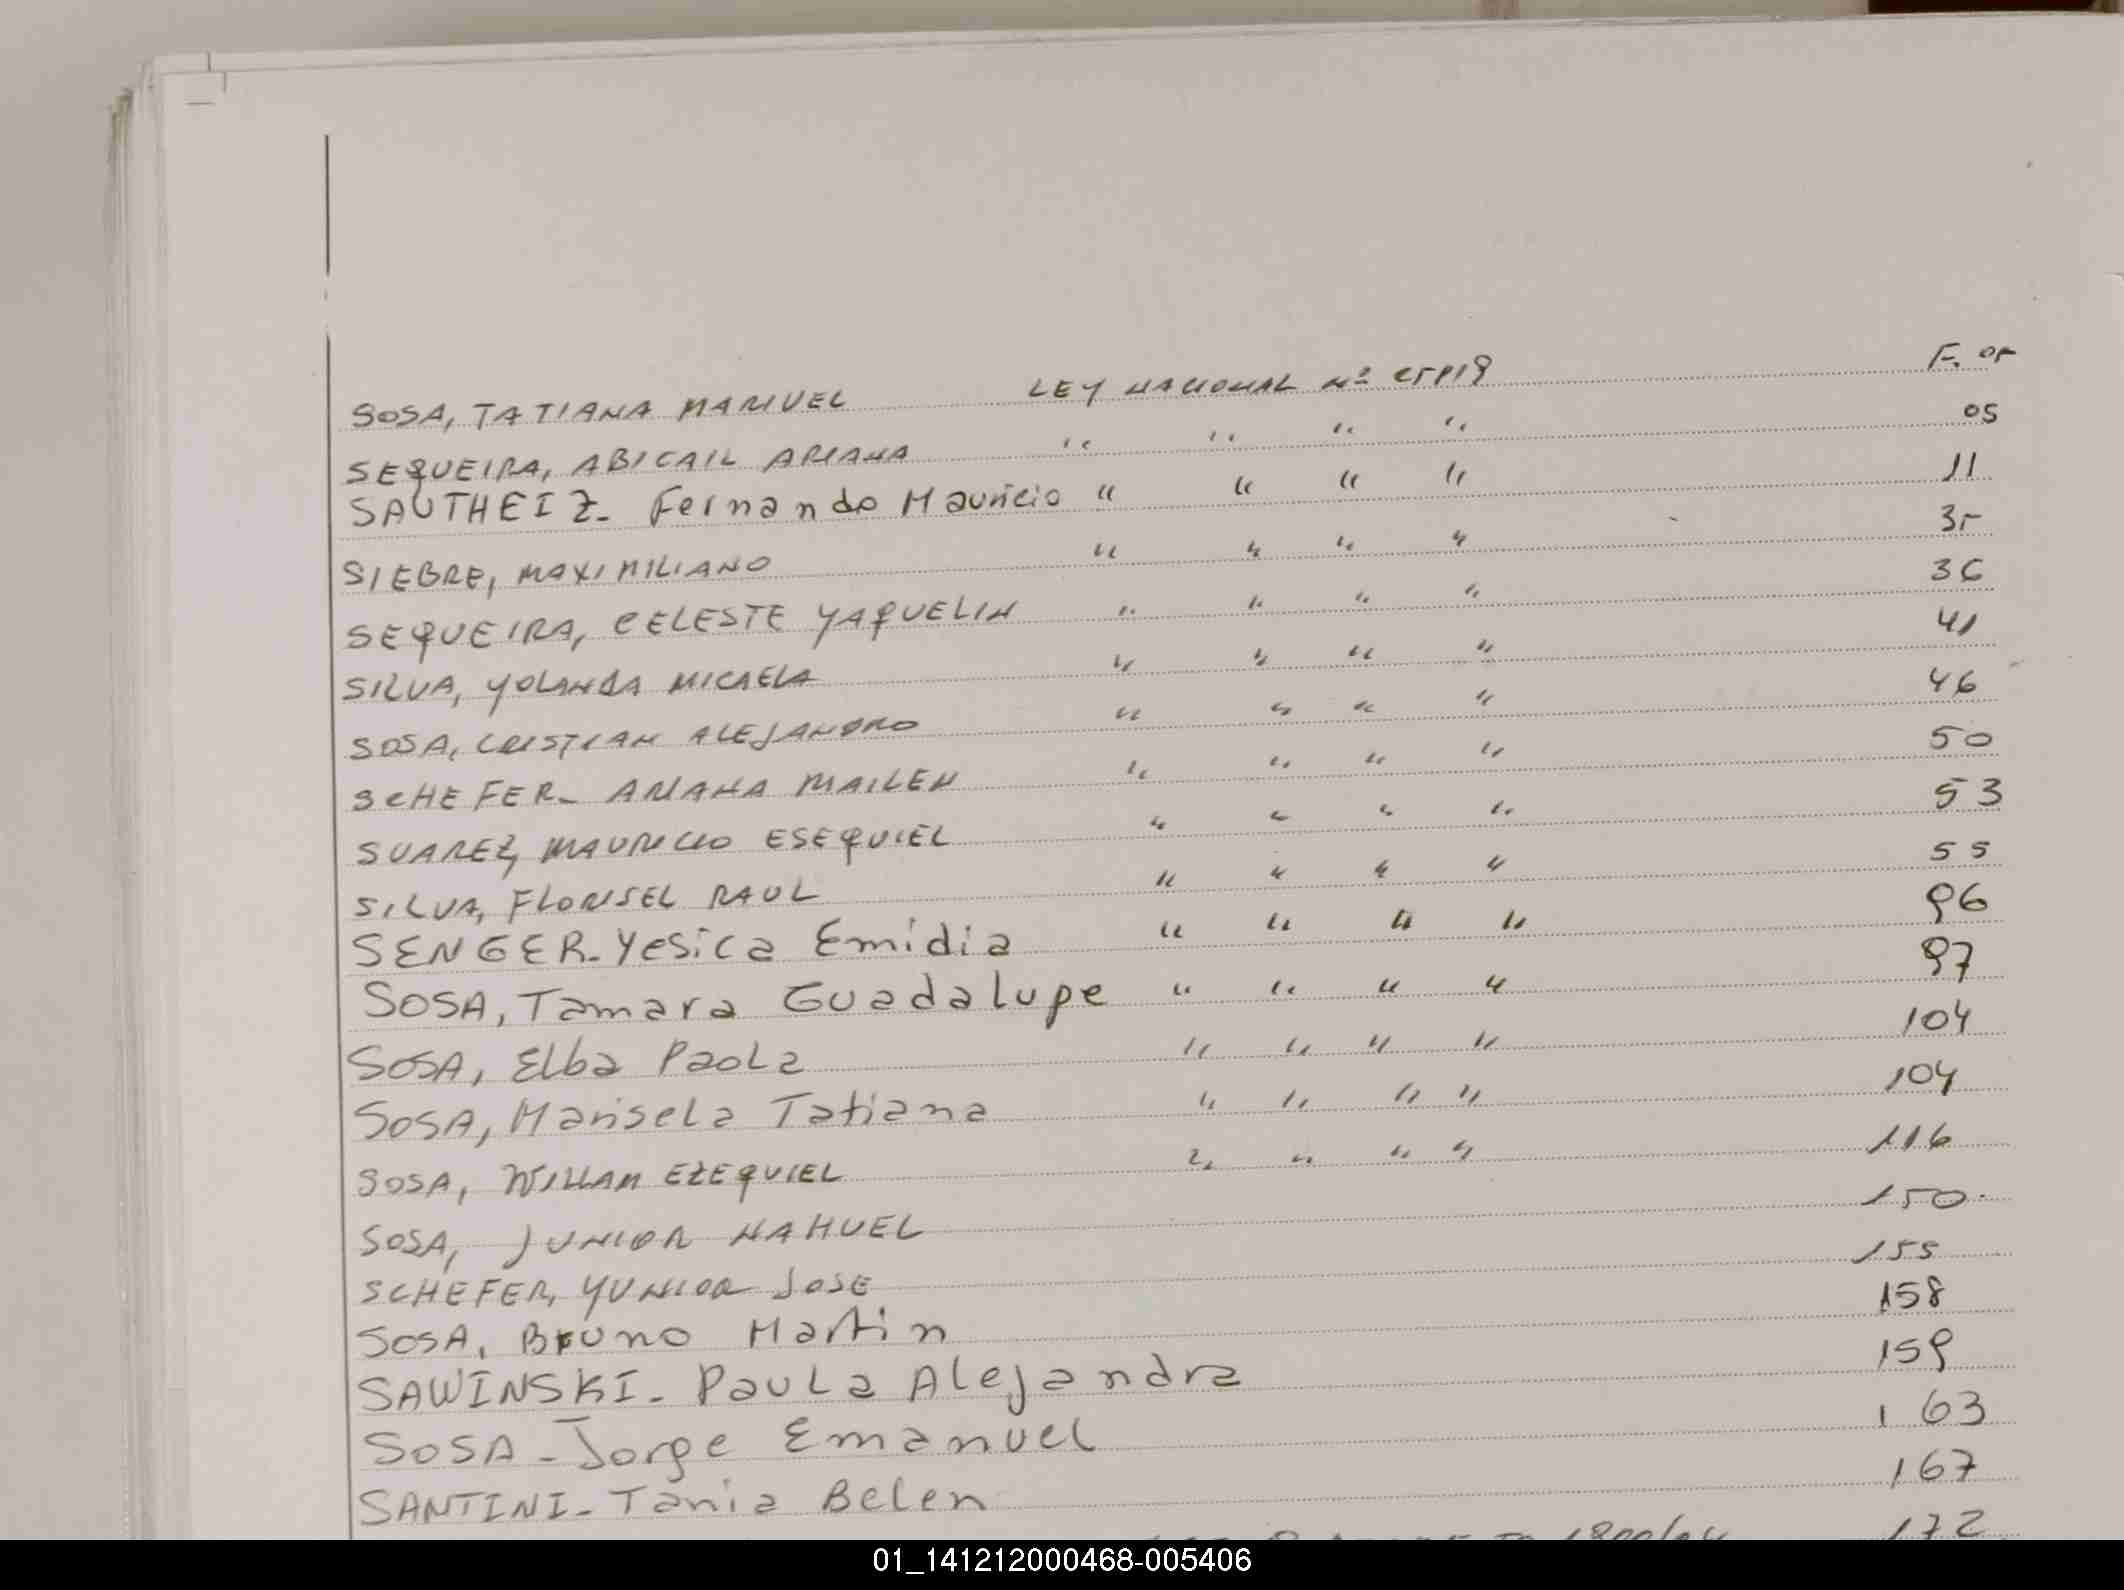 SOSA, TATIANA MARIUEL LEY NACIONAL Nº F. 05
SEQUEIRA, ABIGAIL ARIANA " " " " 05
SAUTHEIZ- Fernando Mauricio " " " " 11
SIEBRE, MAXIMILIANO " " " " 35
SEQUEIRA, CELESTE YAQUELIN " " " " 36
SILVA, YOLANDA MICAELA " " " " 41
SOSA, CRISTIAN ALEJANDRO " " " " 46
SCHEFER- ARIANA MAILEN " " " " 50
SUAREZ, MAURICIO ESEQUIEL " " " " 53
SILVA, FLORISEL RAUL " " " " 55
SENGER- Yesica Emidia " " " " 96
SOSA, Tamara Guadalupe " " " " 97
SOSA, Elba Paola " " " " 104
SOSA, Marisela Tatiana " " " " 104
SOSA, WILLIAM EZEQUIEL " " " " 116
SOSA, JUNIOR NAHUEL 150
SCHEFER, YUNIOR JOSE 155
SOSA, Bruno Martin 158
SAWINSKI- Paula Alejandra 159
SOSA- Jorge Emanuel 163
SANTINI- Tania Belen 167
172
01_141212000468-005406